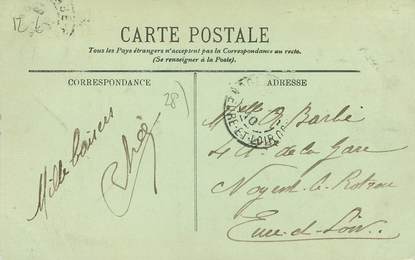 12
CARTE POSTALE
Tous les Pays étrangers n'acceptent pas la Correspondance au recto.
(Se renseigner à la Poste).
CORRESPONDANCE
ADRESSE
28
Mille baisers
Melle Barbé
de la Gare
Nogent-le-Rotrou
Eure-et-Loir
EURE-ET-LOIR